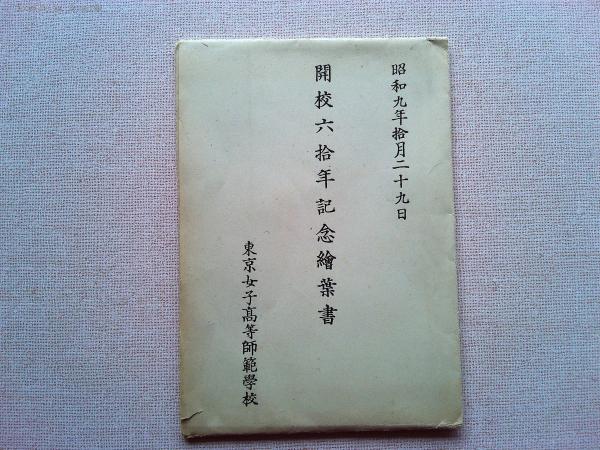 昭和九年拾月二十九日
開校六拾年記念繪葉書
東京女子髙等師範學校